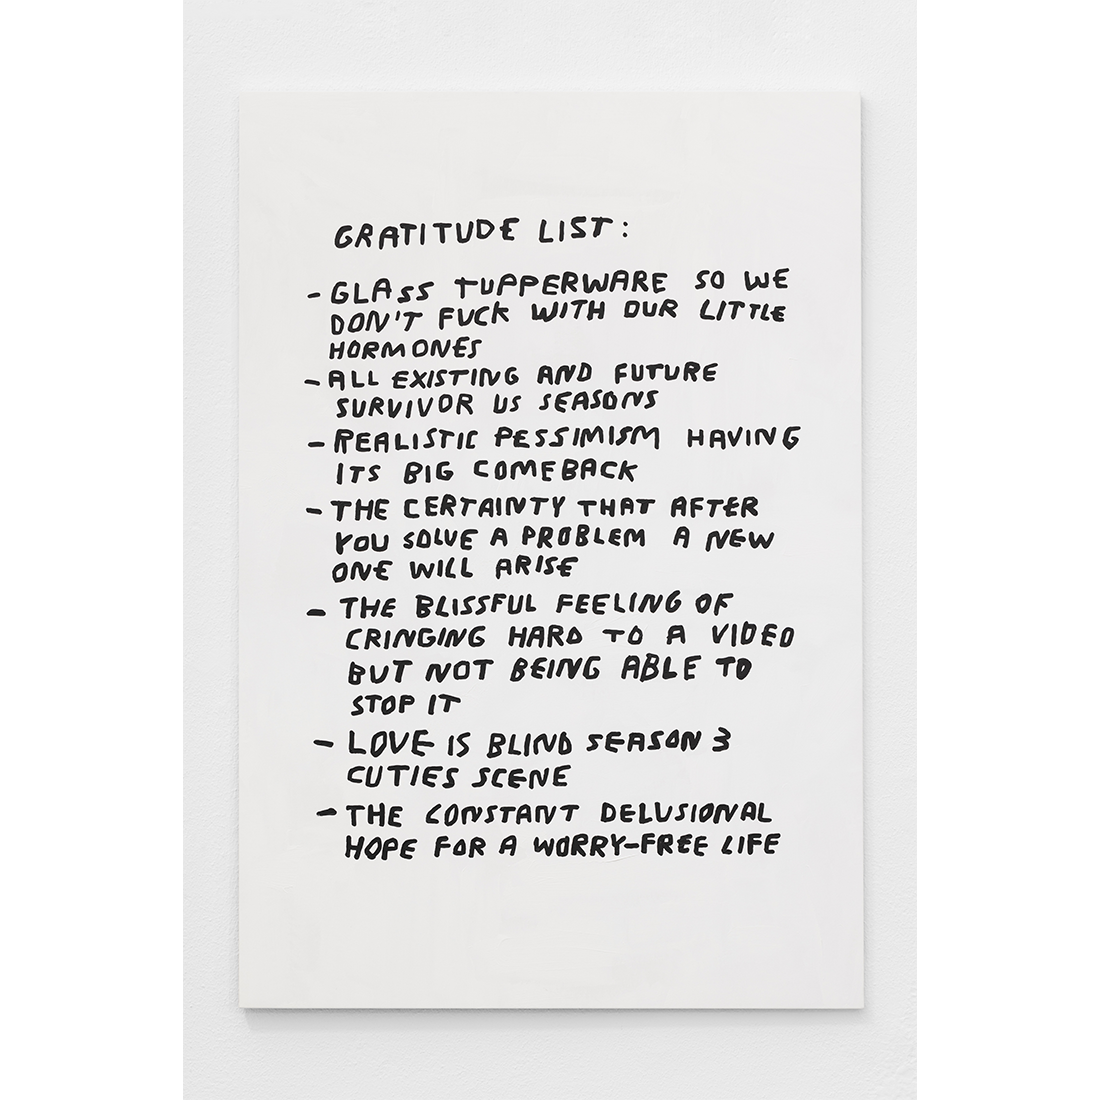 GRATITUDE LIST:
- GLASS TUPPERWARE SO WE
DON'T FUCK WITH OUR LITTLE
HORMONES
- ALL EXISTING AND FUTURE
SURVIVOR US SEASONS
- REALISTIC PESSIMISM HAVING
ITS BIG COMEBACK
- THE CERTAINTY THAT AFTER
YOU SOLVE A PROBLEM A NEW
ONE WILL ARISE
- THE BLISSFUL FEELING OF
CRINGING HARD TO A VIDEO
BUT NOT BEING ABLE TO
STOP IT
- LOVE IS BLIND SEASON 3
CUTIES SCENE
- THE CONSTANT DELUSIONAL
HOPE FOR A WORRY-FREE LIFE